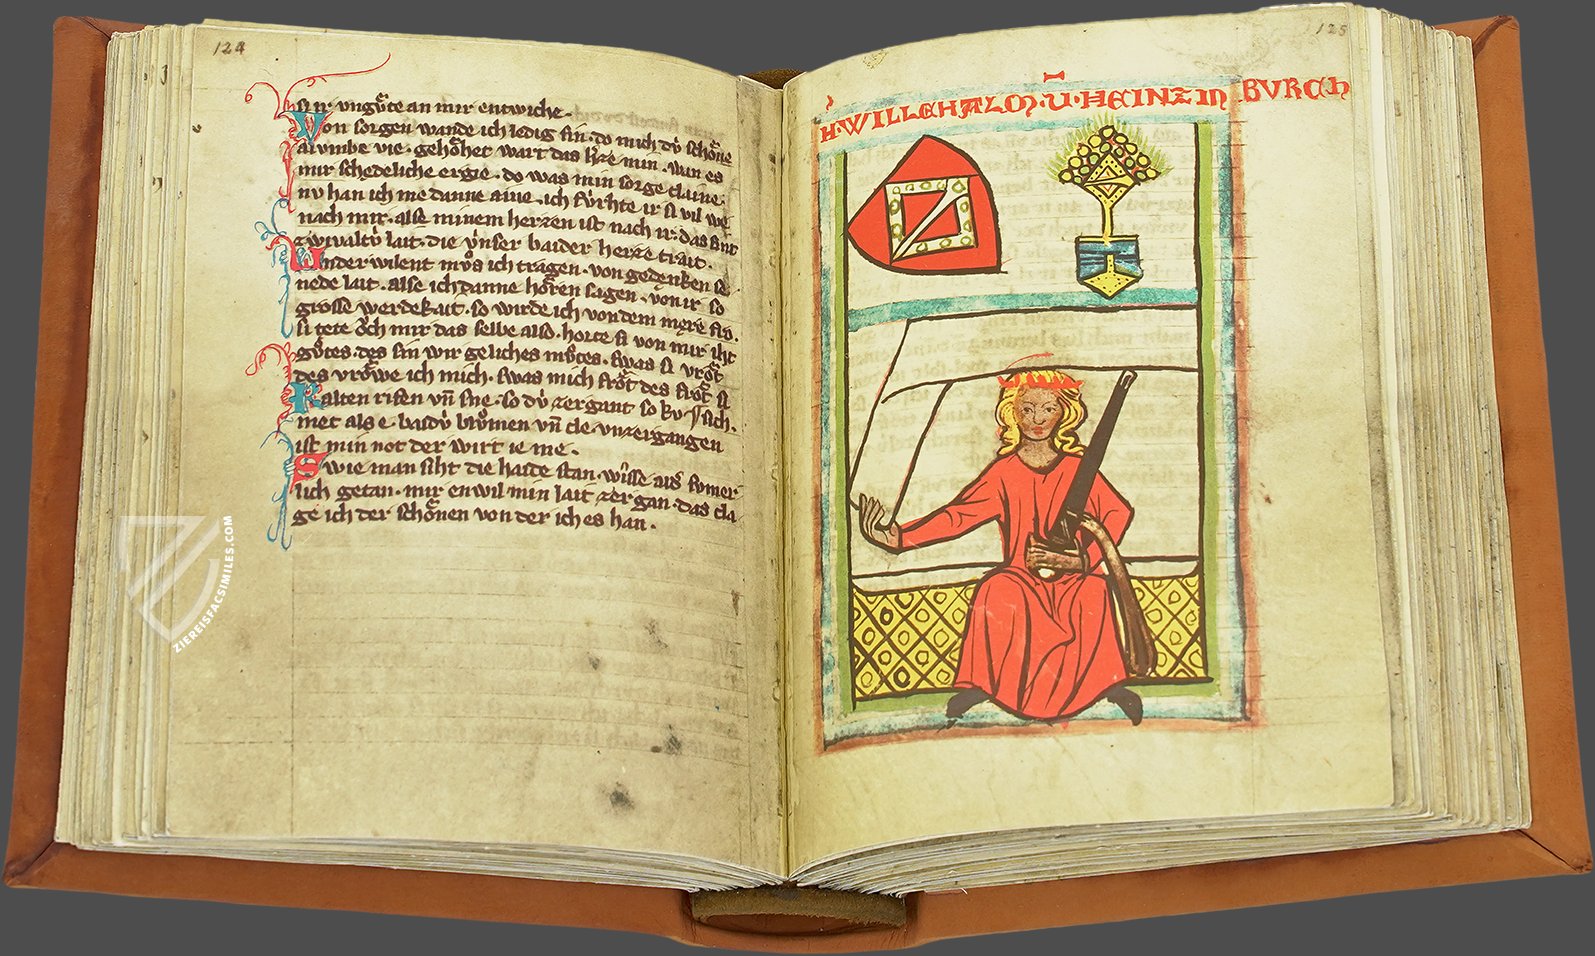 124
sin vngůte an mir entwiche.
Von sorgen wande ich ledig sin. do mich dú schône
al vmbe vie. gehôhet wart das h'ze min. wan es
mir schedeliche ergie. do was min sorge claine.
nv han ich me danne aine. ich fúrhte ir si vil we
nach mir. alse minem herzen ist nach ir. das sint
zwivaltú lait. die vnser baider herze trait.
Vnder wilent můs ich tragen. von gedenken se
nede lait. alse ich danne hôren sagen. von ir so
grosse werdekait. so wirde ich von dem mere fro.
si tete och mir das selbe also. horte si von mir iht
gůtes. des sin wir geliches můtes. swas si vrôt
des vrôwe ich mich. swas mich frôt des frôt si
Kalten risen vñ sne. so dú zergant so
met als e. baidú blůmen vñ cle vnzergangen
ist min not der wirt ie me.
Swie man siht die haide stan. wisse als sumer
lich getan. mir en wil min lait zergan. das cla
ge ich der schônen von der ich es han.
125
H. WILLEHALM. V. HEINZINBVRCH
ZIEREISFACSIMILES.COM